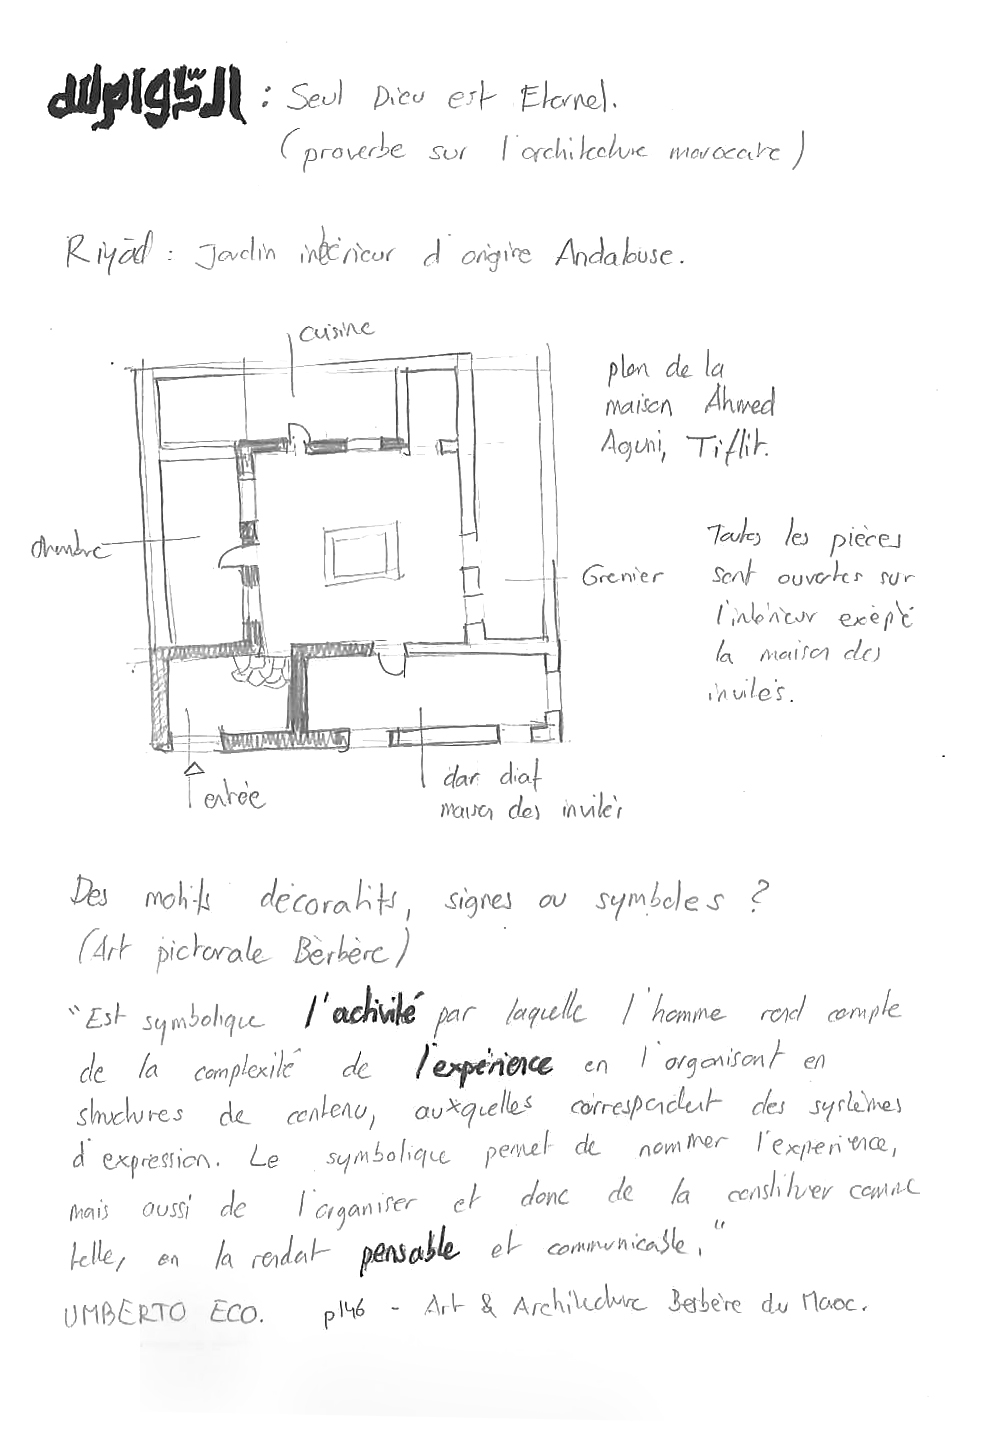 الدّوام لله : Seul Dieu est Eternel.
(proverbe sur l'architecture marocaine)
Riyād : Jardin intérieur d'origine Andalouse.
cuisine
plan de la
maison Ahmed
Aguni, Tiflit.
chambre
Grenier
Toutes les pièces
sont ouvertes sur
l'intérieur exèpté
la maison des
invités.
entrée
dar diaf
maison des invités
Des motifs décoratifs, signes ou symboles ?
(Art pictorale Bèrbère)
"Est symbolique l'activité par laquelle l'homme rend compte
de la complexité de l'expérience en l'organisant en
structures de contenu, auxquelles correspondent des systèmes
d'expression. Le symbolique permet de nommer l'experience,
mais aussi de l'organiser et donc de la constituer comme
telle, en la rendat pensable et communicable."
UMBERTO ECO. p146 - Art & Architecture Berbère du Maoc.